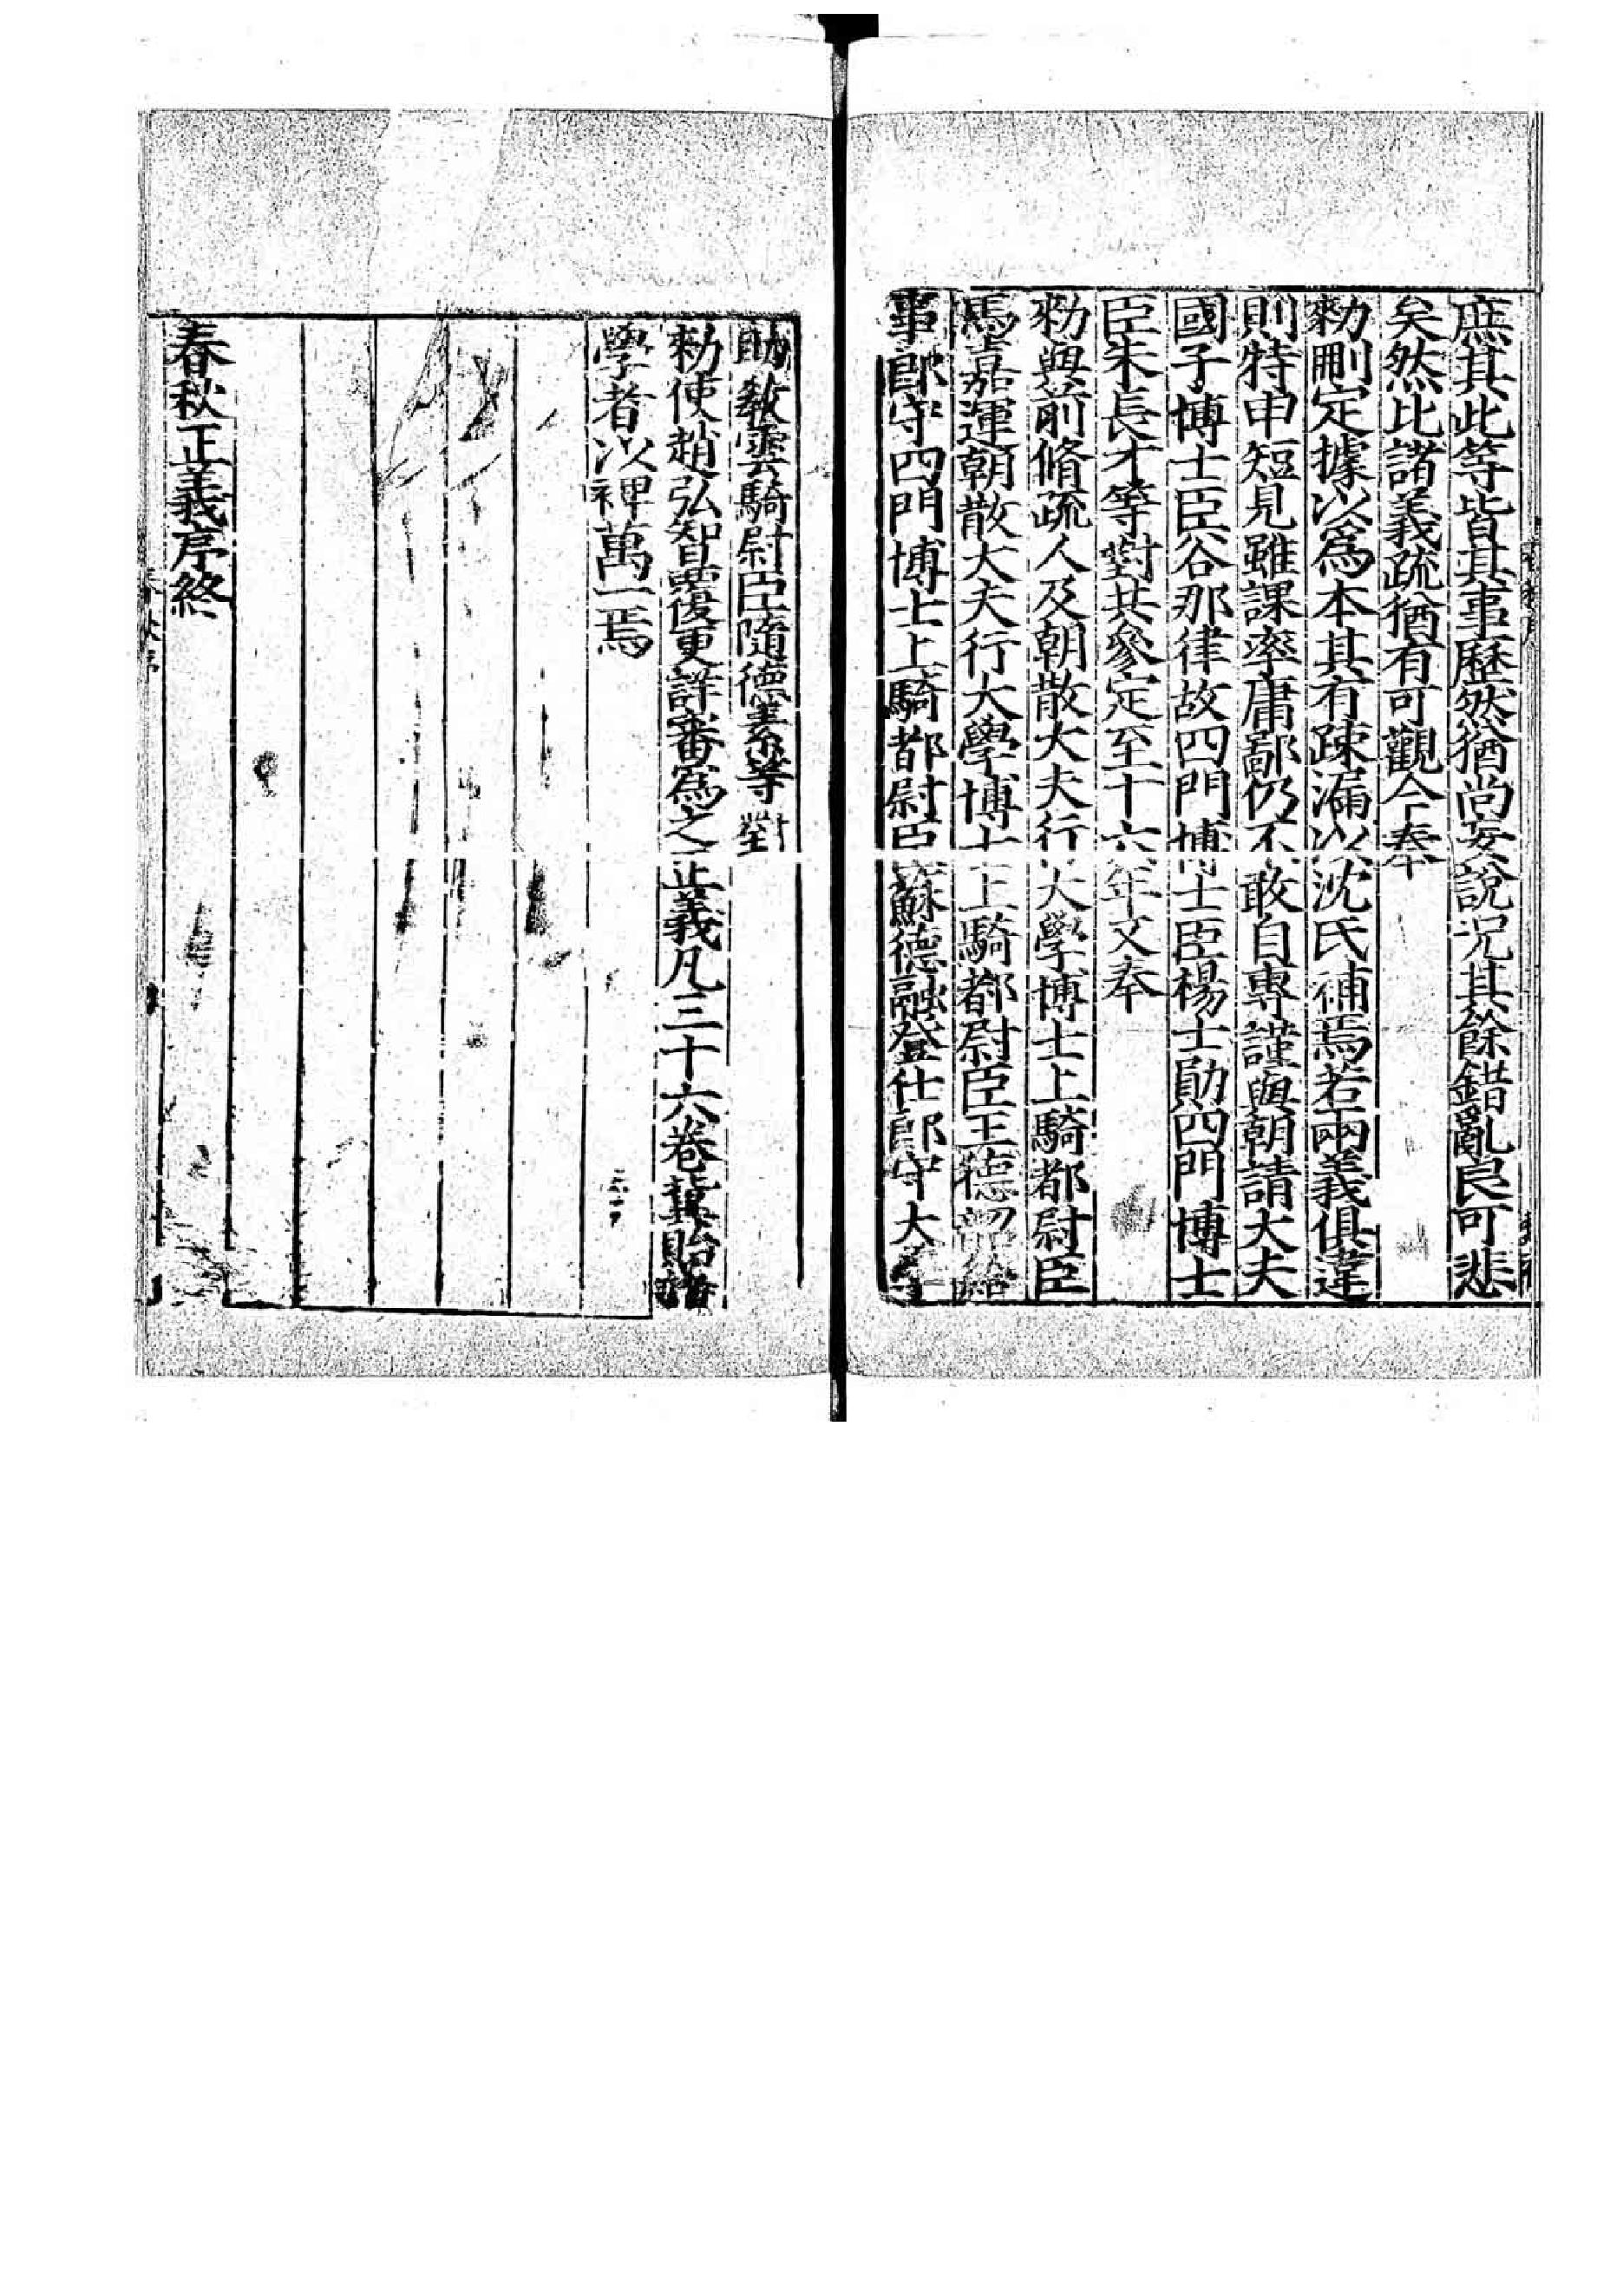 庶其此等皆其事歷然猶尚妄說况其餘錯亂良可悲
矣然比諸義疏猶有可觀今奉
勑刪定據以爲本其有疎漏以沈氏補焉若兩義俱違
則特申短見雖課率庸鄙仍不敢自專謹與朝請大夫
國子博士臣谷那律故四門博士臣楊士勛四門博士
臣朱長才等對共參定至十六年又奉
勑與前脩疏人及朝散大夫行大學博士上騎都尉臣
馬嘉運朝散大夫行大學博士上騎都尉臣王德韶給
事郎守四門博士上騎都尉臣蘇德融登仕郎守大學
助敎雲騎尉臣隨德素等對
勑使趙弘智覆更詳審爲之正義凡三十六卷冀貽諸
學者以裨萬一焉
春秋正義序終